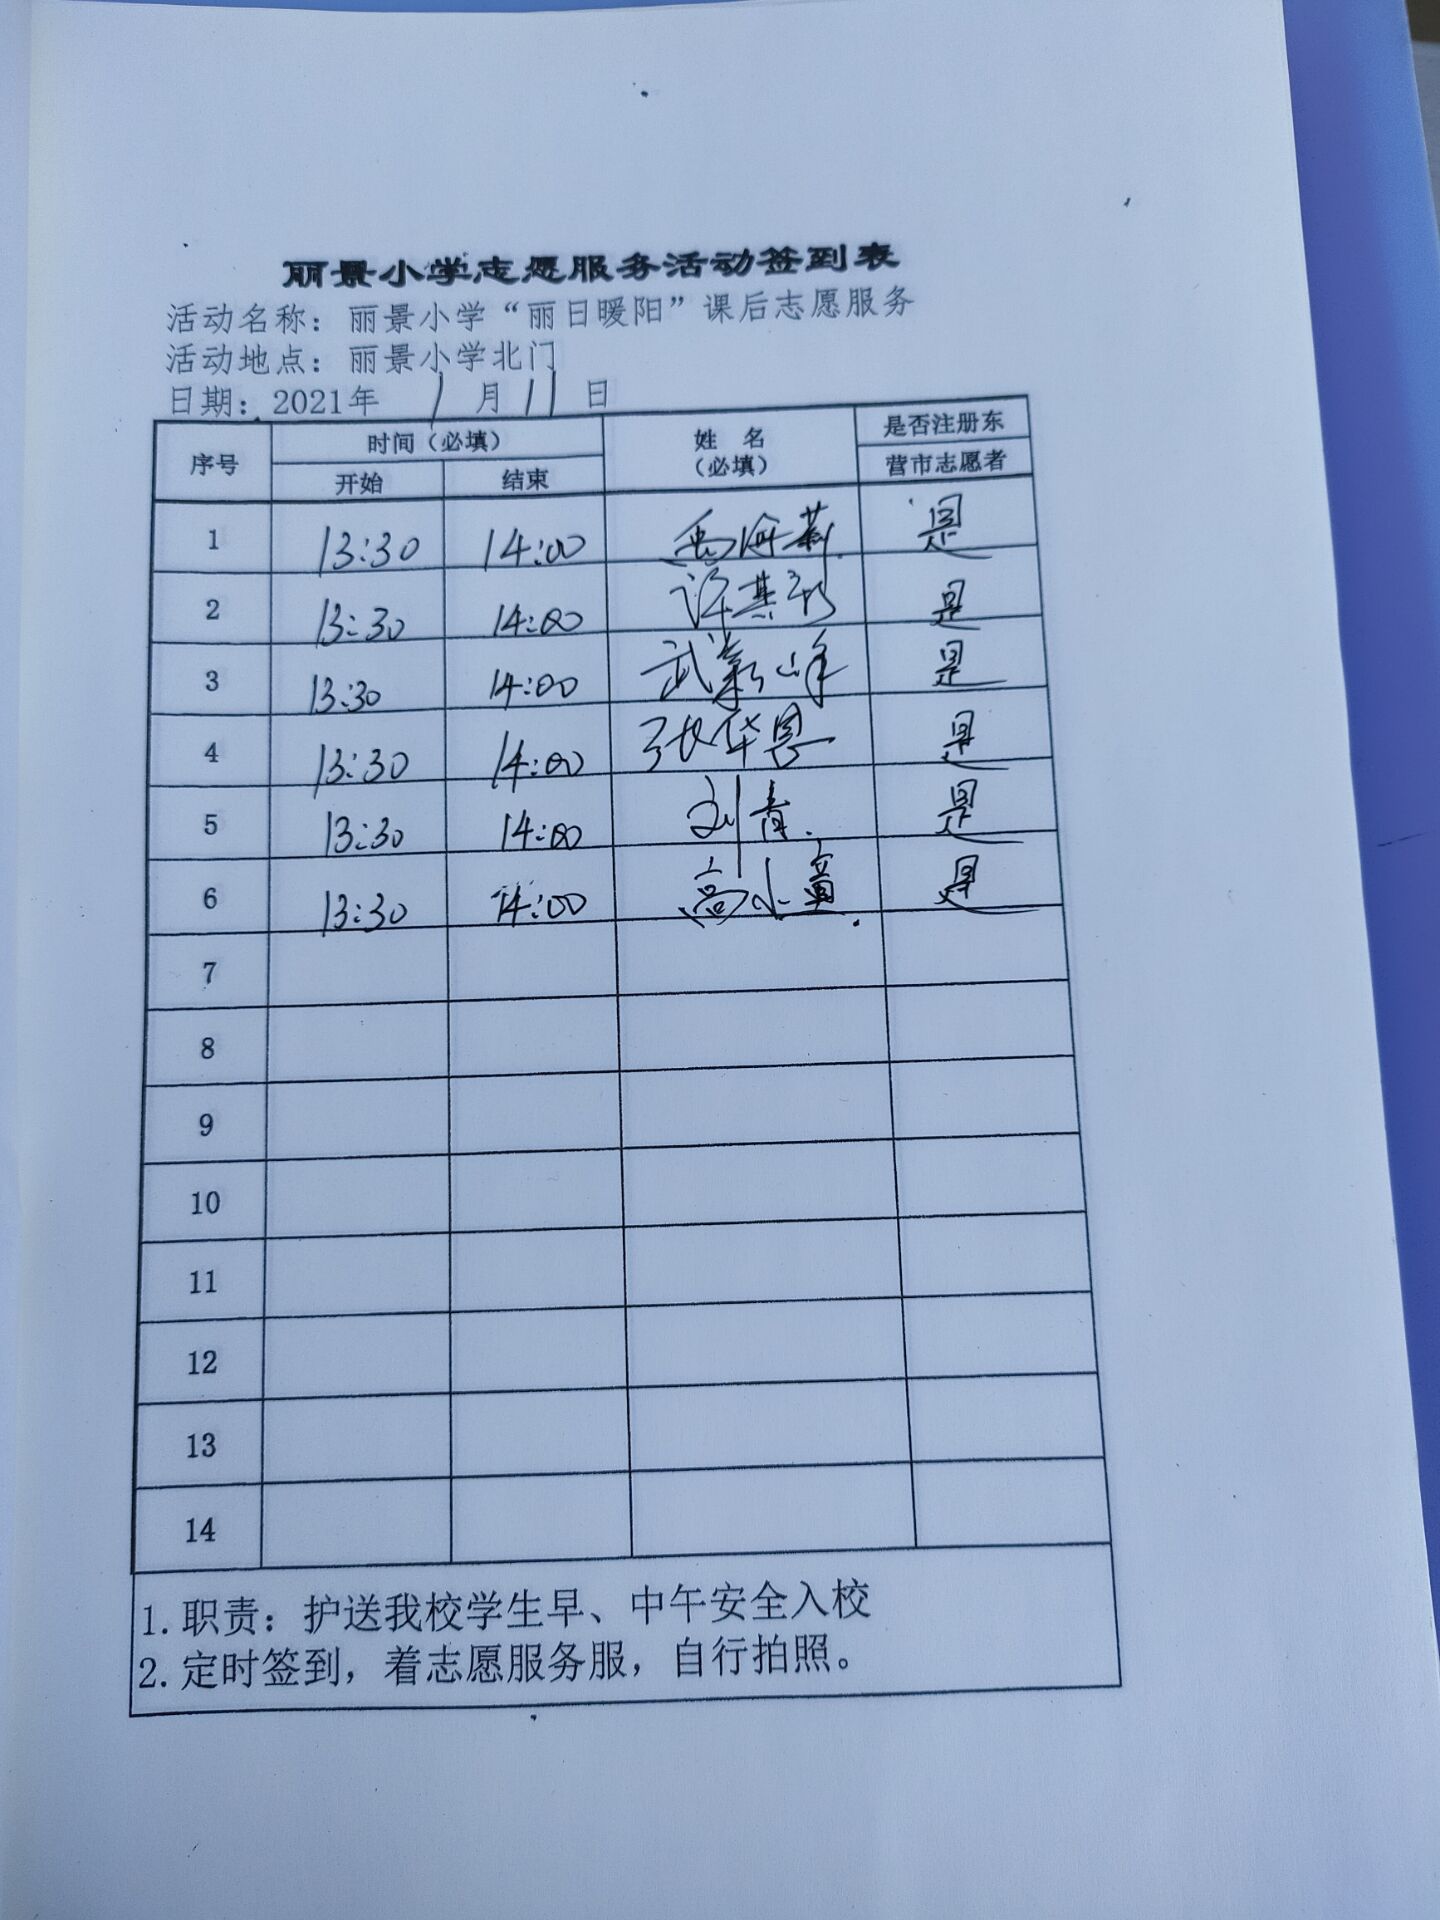 丽景小学志愿服务活动签到表
活动名称：丽景小学“丽日暖阳”课后志愿服务
活动地点：丽景小学北门
日期：2021年 1 月 11 日
序号 时间（必填） 姓 名 是否注册东
开始 结束 （必填） 营市志愿者
1 13:30 14:00 是
2 13:30 14:00 许其彩 是
3 13:30 14:00 武新峰 是
4 13:30 14:00 张华恩 是
5 13:30 14:00 刘青 是
6 13:30 14:00 高小童 是
7
8
9
10
11
12
13
14
1.职责：护送我校学生早、中午安全入校
2.定时签到，着志愿服务服，自行拍照。